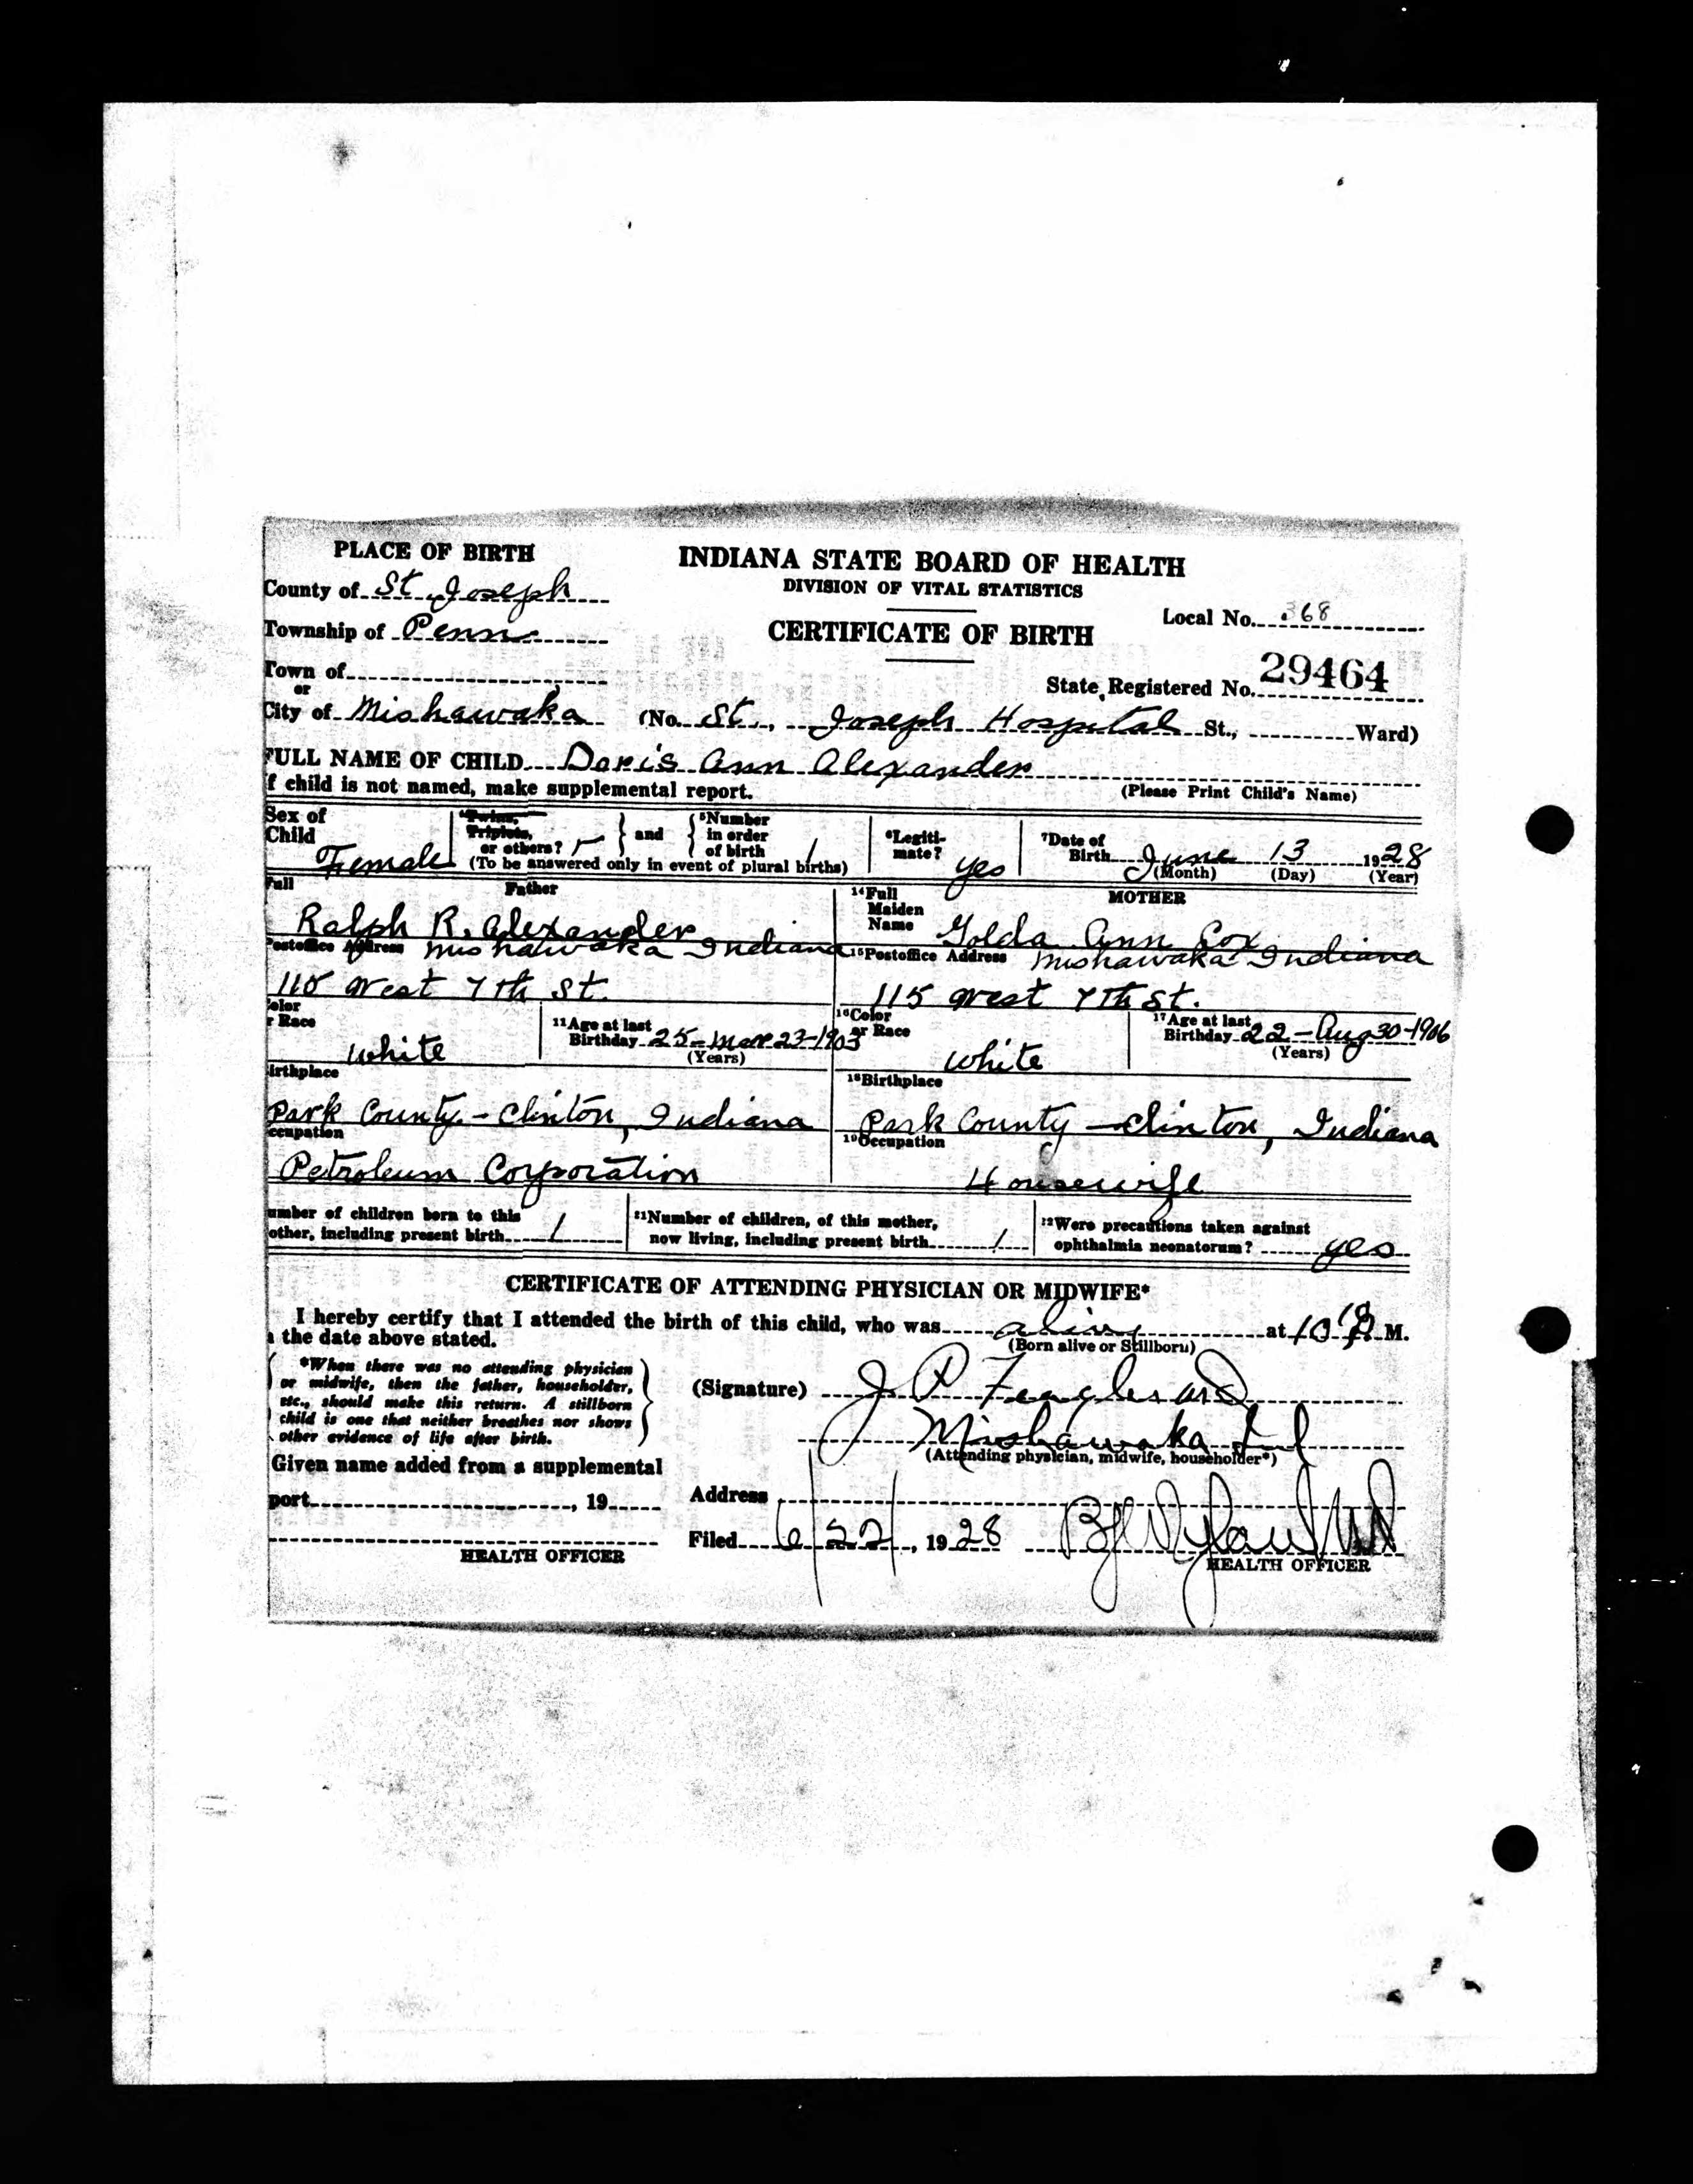 PLACE OF BIRTH
INDIANA STATE BOARD OF HEALTH
DIVISION OF VITAL STATISTICS
County of St. Joseph
Local No. 368
Township of Penn
CERTIFICATE OF BIRTH
Town of
or
State Registered No. 29464
City of Mishawaka (No. St., Joseph Hospital St., Ward)
FULL NAME OF CHILD Doris Ann Alexander
f child is not named, make supplemental report. (Please Print Child's Name)
Sex of Child Female
4Twins, Triplets, or others? and 5Number in order of birth 1
(To be answered only in event of plural births)
6Legiti-mate? yes
7Date of Birth June 13 1928
(Month) (Day) (Year)
Full Father
Ralph R. Alexander
14Full Maiden Name MOTHER
Golda Ann Cox
Postoffice Address Mishawaka Indiana
115 West 7th St.
15Postoffice Address Mishawaka Indiana
115 West 7th St.
olor r Race White
11Age at last Birthday 25-Mar 23-1903
(Years)
16Color or Race White
17Age at last Birthday 22-Aug 30-1906
(Years)
irthplace
Park County - Clinton, Indiana
18Birthplace
Park County - Clinton, Indiana
ccupation
Petroleum Corporation
19Occupation
Housewife
umber of children born to this other, including present birth 1
21Number of children, of this mother, now living, including present birth 1
22Were precautions taken against ophthalmia neonatorum? yes
CERTIFICATE OF ATTENDING PHYSICIAN OR MIDWIFE*
I hereby certify that I attended the birth of this child, who was alive at 10 M.
the date above stated. (Born alive or Stillborn)
*When there was no attending physician
or midwife, then the father, householder,
etc., should make this return. A stillborn
child is one that neither breathes nor shows
other evidence of life after birth.
(Signature) J. P. Feagles MD
Mishawaka Ind
(Attending physician, midwife, householder*)
Given name added from a supplemental
port , 19
Address
Filed 6/22/, 1928
HEALTH OFFICER
HEALTH OFFICER